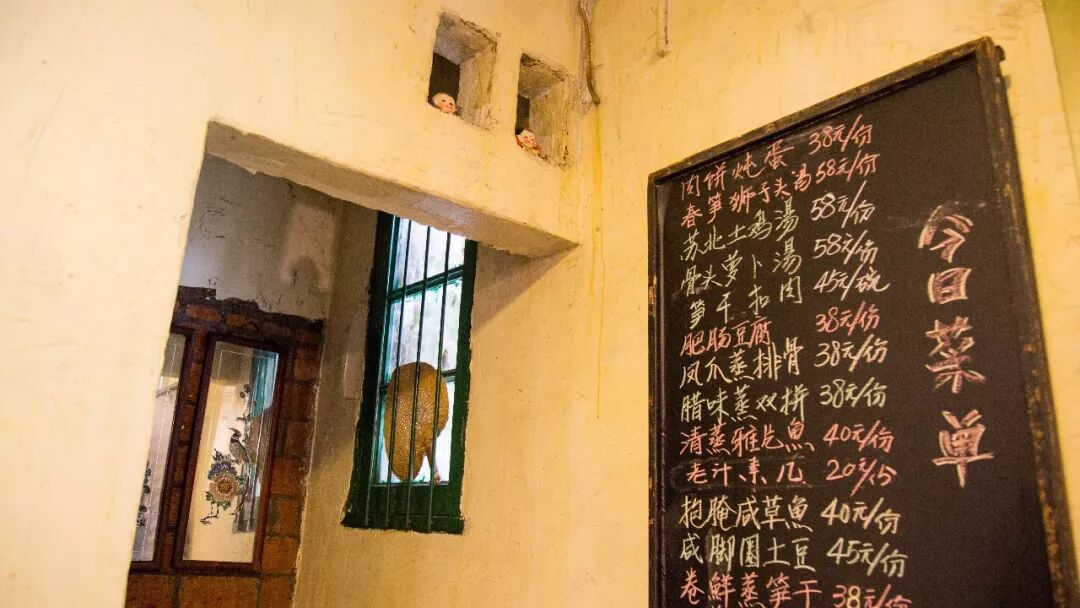 今日菜单
肉饼炖蛋 38元/份
春笋狮子头汤 58元/份
苏北土鸡汤 58元/份
骨头萝卜汤 58元/份
笋干扣肉 45元/碗
肥肠豆腐 38元/份
凤爪蒸排骨 38元/份
腊味蒸双拼 38元/份
清蒸雅片魚 40元/份
老汁素 20元/
抱腌咸草魚 40元/份
咸脚圆土豆 45元/份
卷鮮蒸笋干 38元/份